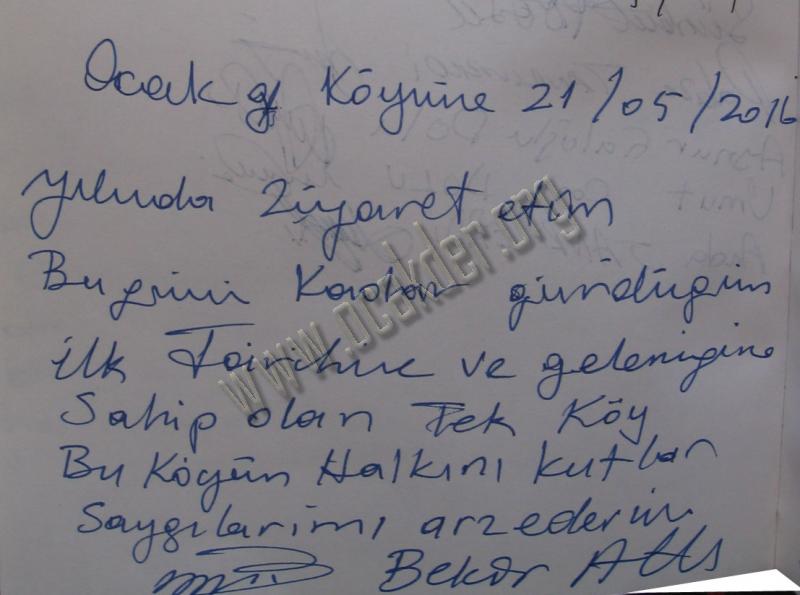 Ocak Köyüne 21/05/2016
yılında ziyaret etim
Bu güne Kadar gürdügüm
ilk Tairihine ve gelenigine
Sahip olan Tek Köy
Bu Köyün Halkını kutlar
Saygılarımı arzederim
Bekir
www.ocakder.org